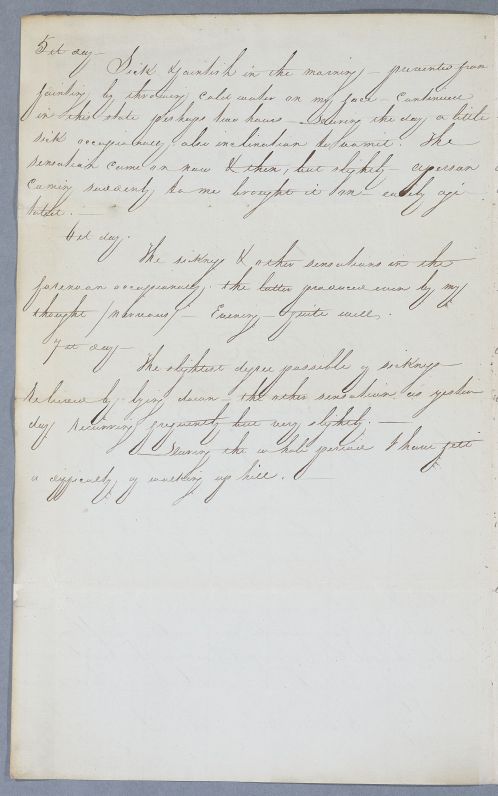 5th day –
Sick & faintish in the morning – prevented from
fainting by throwing cold water on my face – Continued
in this state perhaps two hours – During the day a little
sick occasionally, also inclination to vomit. The
sensation came on now & then, but slightly – a person
coming suddenly to me brought it on – easily agi-
tated. –
6th day.
The sickness & other sensations in the
forenoon occasionally, the latter produced even by my
thought (nervous) – Evening – quite well.
7th day –
The slightest degree possible of sickness
relieved by lying down – the other sensation, as yester-
day recurring frequently but very slightly. –
During the whole period I have felt
a difficulty of walking up hill. –